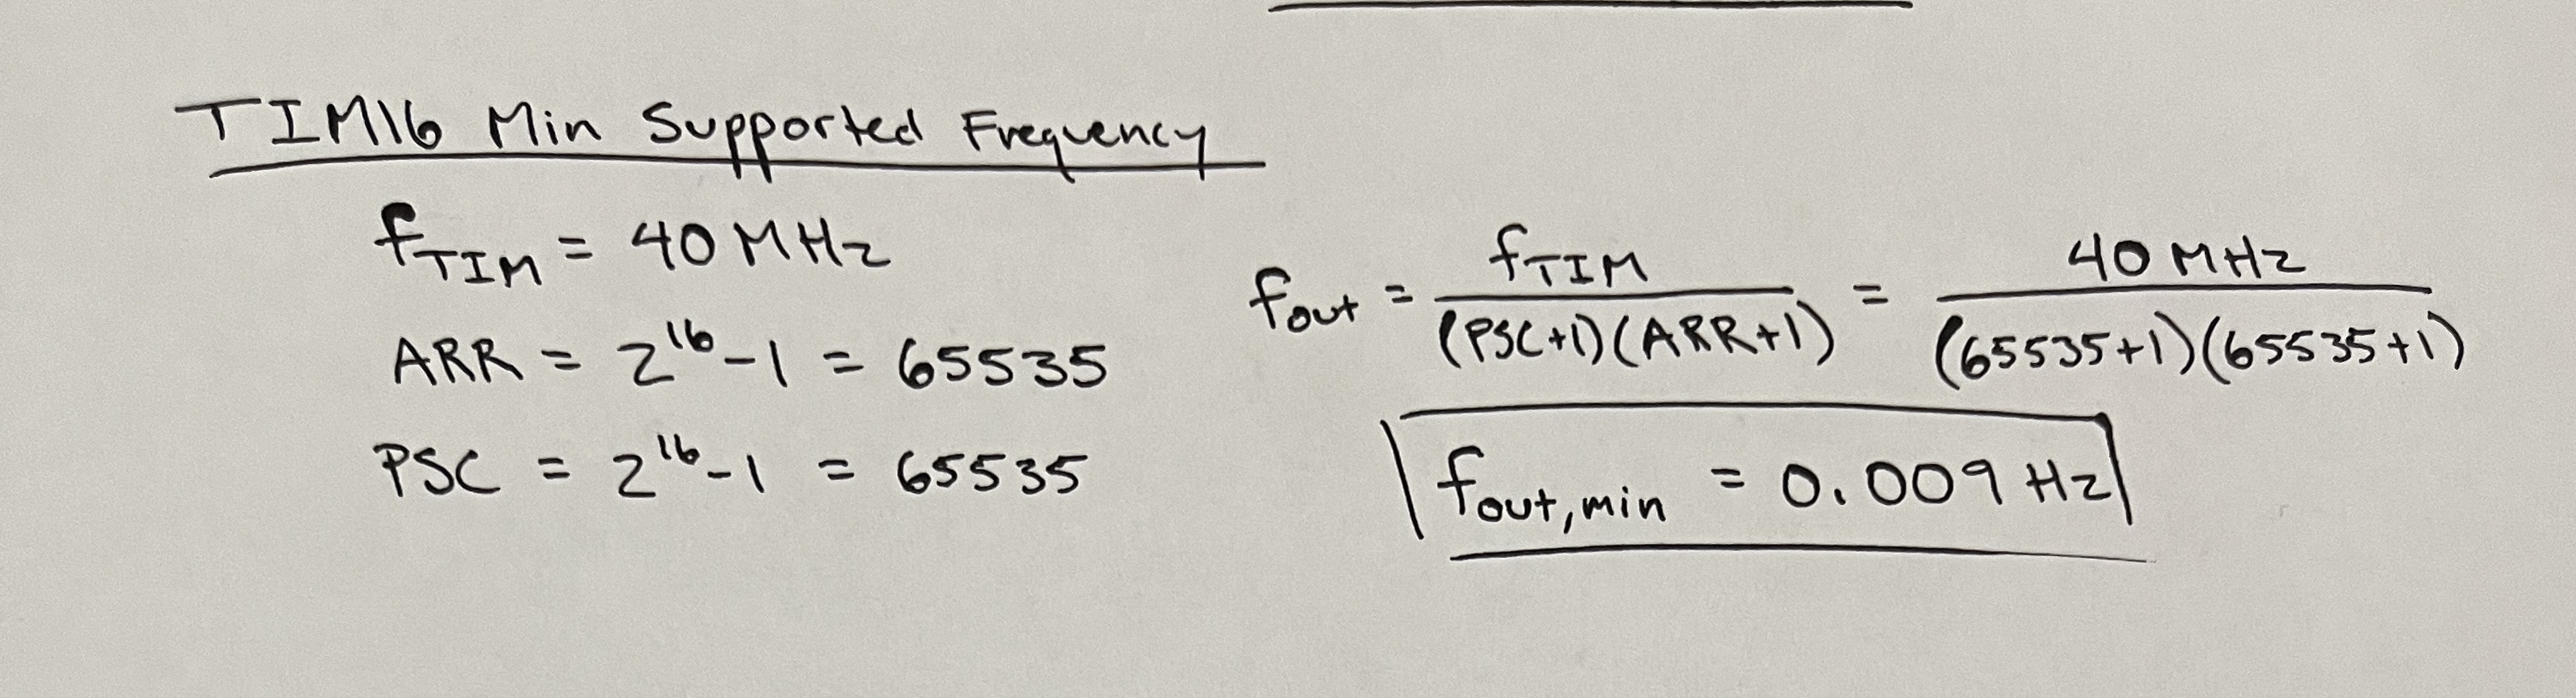 TIM16 Min Supported Frequency
f_TIM = 40 MHz
ARR = 2^16 - 1 = 65535
PSC = 2^16 - 1 = 65535
f_out = f_TIM / (PSC+1)(ARR+1) = 40 MHz / (65535+1)(65535+1)
f_out,min = 0.009 Hz